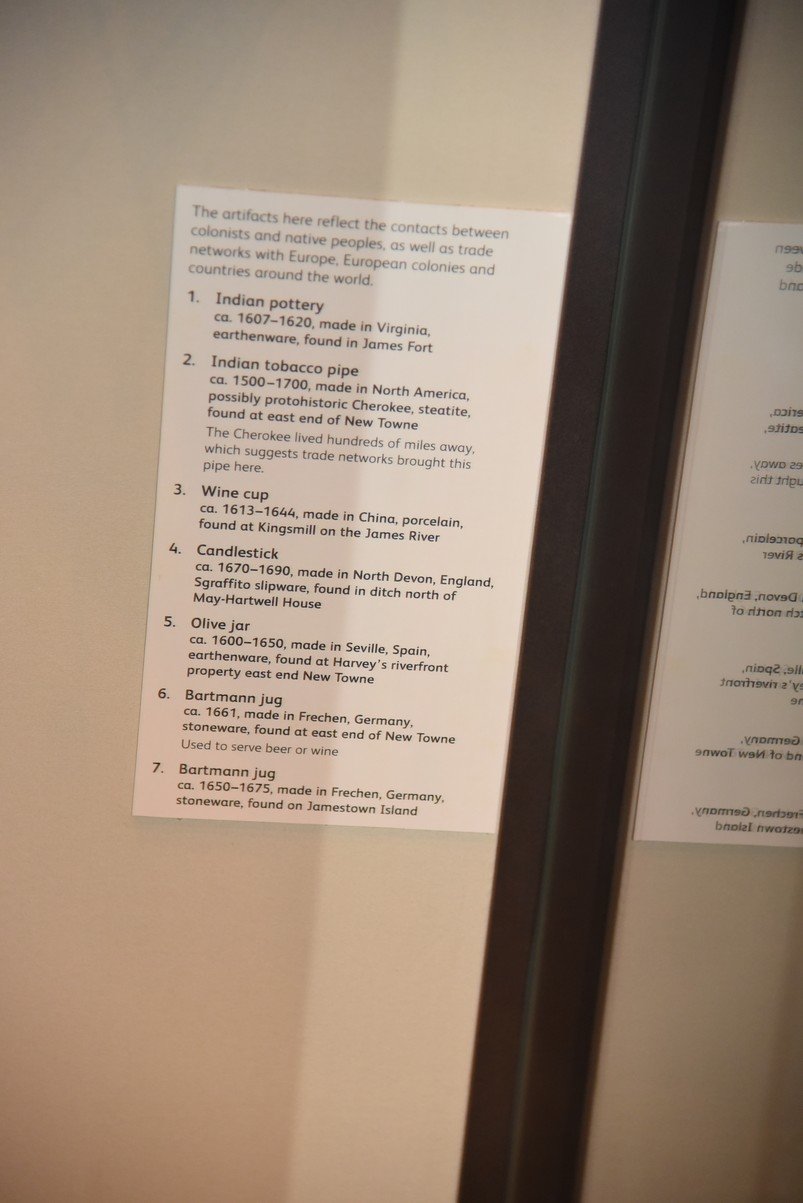 The artifacts here reflect the contacts between
colonists and native peoples, as well as trade
networks with Europe, European colonies and
countries around the world.
1. Indian pottery
ca. 1607–1620, made in Virginia,
earthenware, found in James Fort
2. Indian tobacco pipe
ca. 1500–1700, made in North America,
possibly protohistoric Cherokee, steatite,
found at east end of New Towne
The Cherokee lived hundreds of miles away,
which suggests trade networks brought this
pipe here.
3. Wine cup
ca. 1613–1644, made in China, porcelain,
found at Kingsmill on the James River
4. Candlestick
ca. 1670–1690, made in North Devon, England,
Sgraffito slipware, found in ditch north of
May-Hartwell House
5. Olive jar
ca. 1600–1650, made in Seville, Spain,
earthenware, found at Harvey's riverfront
property east end New Towne
6. Bartmann jug
ca. 1661, made in Frechen, Germany,
stoneware, found at east end of New Towne
Used to serve beer or wine
7. Bartmann jug
ca. 1650–1675, made in Frechen, Germany,
stoneware, found on Jamestown Island